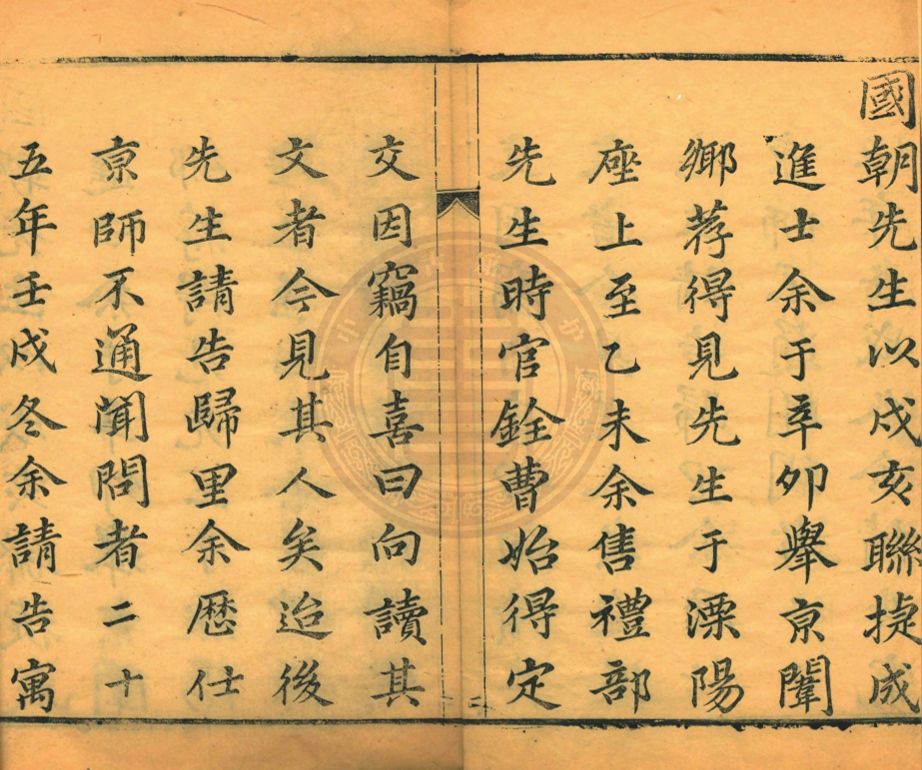 國朝先生以戍亥聯捷成
進士余于辛卯舉京闈
鄉荐得見先生于溧陽
座上至乙未余售禮部
先生時官銓曹始得定
交因竊自喜曰向讀其
文者今見其人矣迨後
先生請告歸里余歷仕
京師不通聞問者二十
五年壬戌冬余請告寓
二